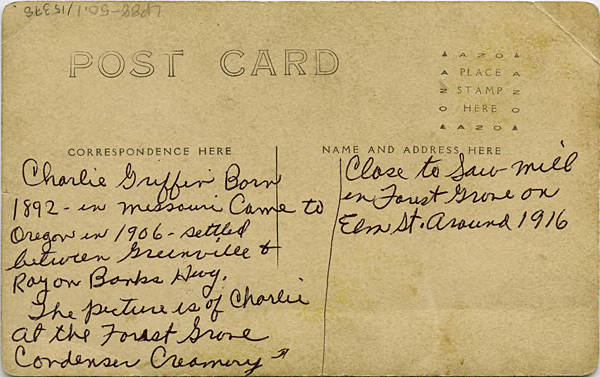 LP88-50.1/15378
POST CARD
AZO
PLACE
STAMP
HERE
AZO
CORRESPONDENCE HERE
NAME AND ADDRESS HERE
Charlie Griffin Born
1892 - in Missouri Came to
Oregon in 1906 - settled
between Greenville &
Roy on Banks Hwy.
The picture is of Charlie
at the Forest Grove
Condenser Creamery
Close to Saw mill
in Forest Grove on
Elm St. Around 1916